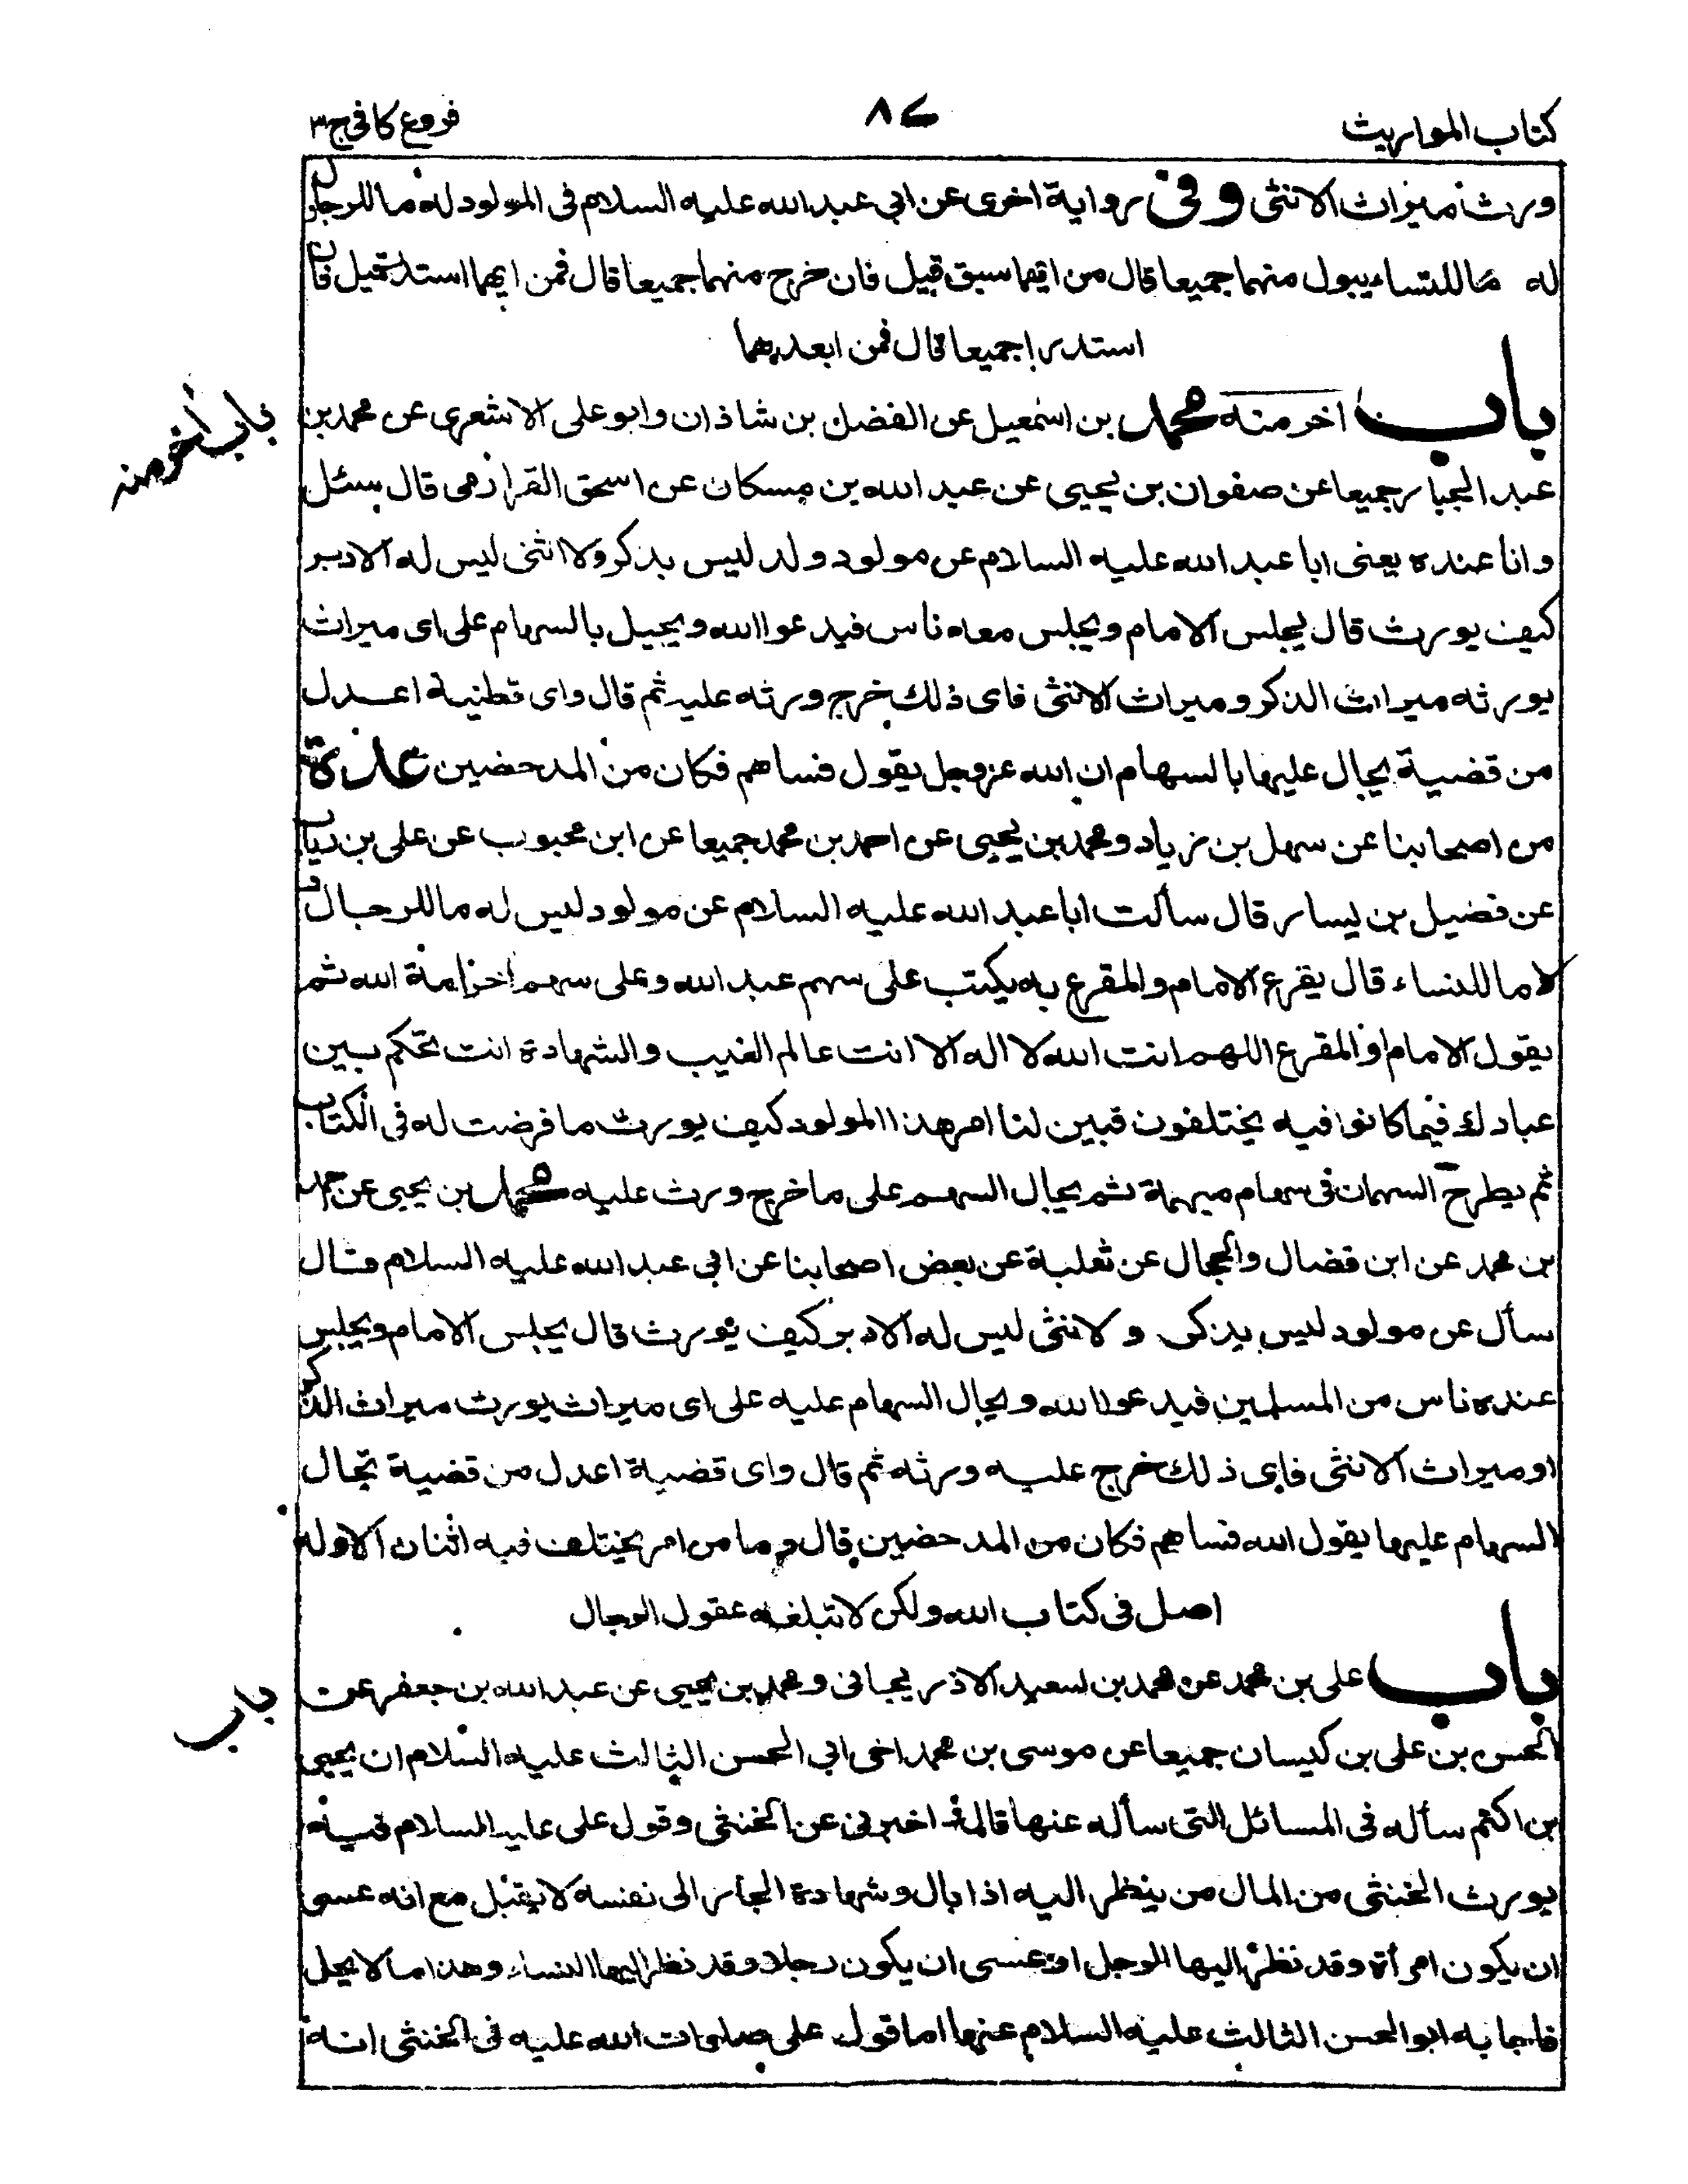 كتاب المواريث
٨٧
فروع كافى ج٣
ورث ميراث الانثى وفى رواية اخرى عن ابى عبد الله عليه السلام فى المولود له ما للرجال
له ما للنساء يبول منهما جميعا قال من ايهما سبق قيل فان خرج منهما جميعا قال فمن ايهما استدر قيل فان
استدرا جميعا قال فمن ابعدهما
باب اخر منه محمد بن اسمعيل عن الفضل بن شاذان وابو على الاشعرى عن محمد بن
باب اخر منه
عبد الجبار جميعا عن صفوان بن يحيى عن عبد الله بن مسكان عن اسحق الفزارى قال سئل
وانا عنده يعنى ابا عبد الله عليه السلام عن مولود ولد ليس بذكر ولا انثى ليس له الا دبر
كيف يورث قال يجلس الامام ويجلس معه ناس فيدعوا الله ويجيل بالسهام على اى ميراث
يورثه ميراث الذكر وميراث الانثى فاى ذلك خرج ورثه عليه ثم قال واى قضية اعدل
من قضية يجال عليها بالسهام ان الله عز وجل يقول فساهم فكان من المدحضين عدة
من اصحابنا عن سهل بن زياد ومحمد بن يحيى عن احمد بن محمد جميعا عن ابن محبوب عن على بن رياب
عن فضيل بن يسار قال سألت ابا عبد الله عليه السلام عن مولود ليس له ما للرجال و
لا ما للنساء قال يقرع الامام والمقرع به يكتب على سهم عبد الله وعلى سهم اخر امة الله ثم
يقول الامام او المقرع اللهم انت الله لا اله الا انت عالم الغيب والشهادة انت تحكم بين
عبادك فيما كانوا فيه يختلفون فبين لنا امر هذا المولود كيف يورث ما فرضت له فى الكتاب
ثم يطرح السهمان فى سهام مبهمة ثم يجال السهم على ما خرج ورث عليه محمد بن يحيى عن احمد
بن محمد عن ابن فضال والحجال عن ثعلبة عن بعض اصحابنا عن ابى عبد الله عليه السلام قال
سأل عن مولود ليس بذكر ولا انثى ليس له الا دبر كيف يورث قال يجلس الامام ويجلس
عنده ناس من المسلمين فيدعوا الله ويجال السهام عليه على اى ميراث يورث ميراث الذكر
او ميراث الانثى فاى ذلك خرج عليه ورثه ثم قال واى قضية اعدل من قضية تجال
السهام عليها يقول الله فساهم فكان من المدحضين قال وما من امر يختلف فيه اثنان الا وله
اصل فى كتاب الله ولكن لا تبلغه عقول الرجال
باب على بن محمد عن محمد بن سعيد الاذربيجانى ومحمد بن يحيى عن عبد الله بن جعفر عن
باب
الحسن بن على بن كيسان جميعا عن موسى بن محمد اخى ابى الحسن الثالث عليه السلام ان يحيى
بن اكثم سأله فى المسائل التى سأله عنها قال اخبرنى عن الخنثى وقول على عليه السلام فيه
يورث الخنثى من المال من ينظر اليه اذا بال وشهادة الجار الى نفسه لا يقبل مع انه عسى
ان يكون امرأة وقد نظر اليها الرجل او عسى ان يكون رجلا وقد نظر اليها النساء وهذا ما لا يحل
فاجابه ابو الحسن الثالث عليه السلام عنها اما قول على صلوات الله عليه فى الخنثى انه